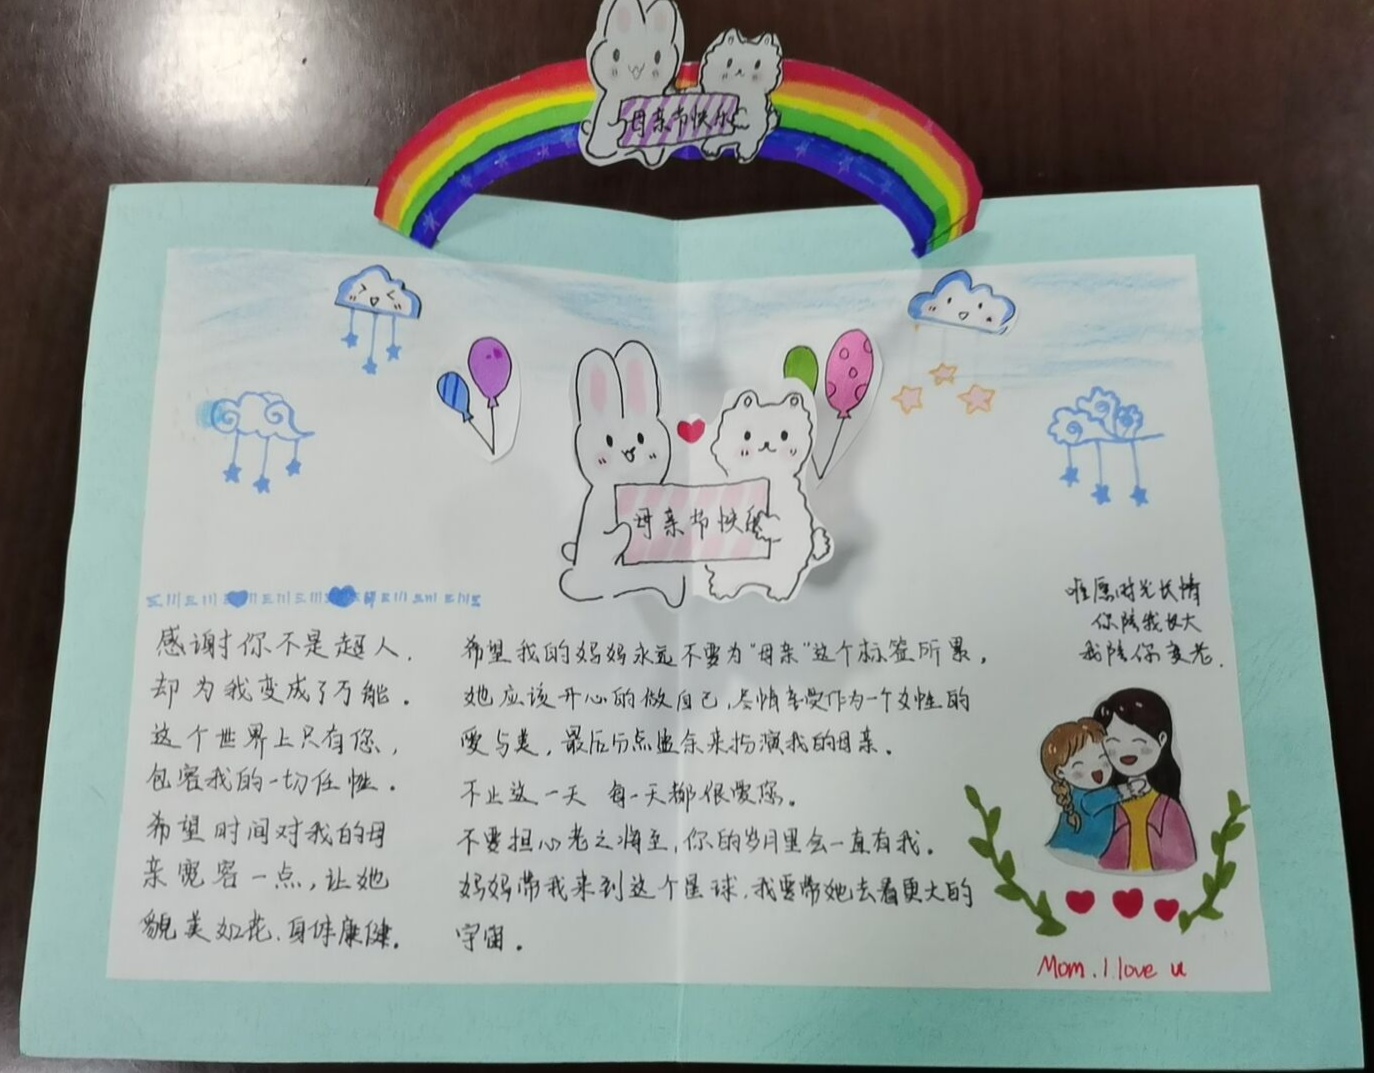 母亲节快乐
母亲节快乐
感谢你不是超人，
却为我变成了万能。
这个世界上只有您，
包容我的一切任性。
希望时间对我的母
亲宽容一点，让她
貌美如花、身体康健。
希望我的妈妈永远不要为“母亲”这个标签所累，
她应该开心的做自己，尽情享受作为一个女性的
爱与美，最后分点盈余来扮演我的母亲。
不止这一天 每一天都很爱您。
不要担心老之将至，你的岁月里会一直有我。
妈妈带我来到这个星球，我要带她去看更大的
宇宙。
唯愿时光长情
你陪我长大
我陪你变老.
Mom. I love u